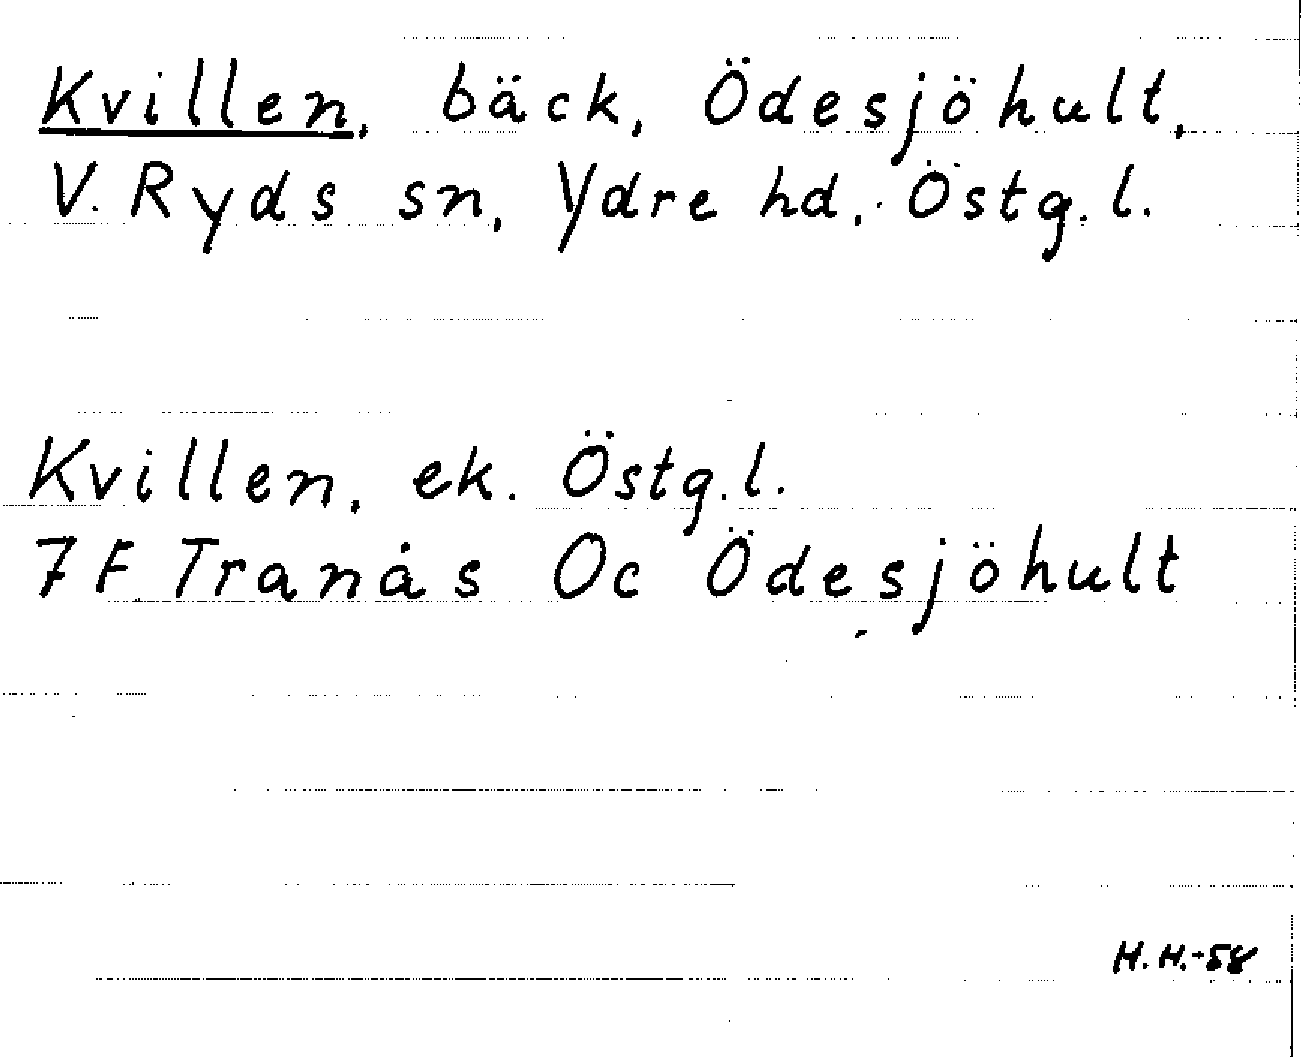 Kvillen, bäck, Ödesjöhult,
V. Ryds sn, Ydre hd, Östg. l.
Kvillen, ek. Östg. l.
7F Tranås Oc Ödesjöhult
H. H. -58